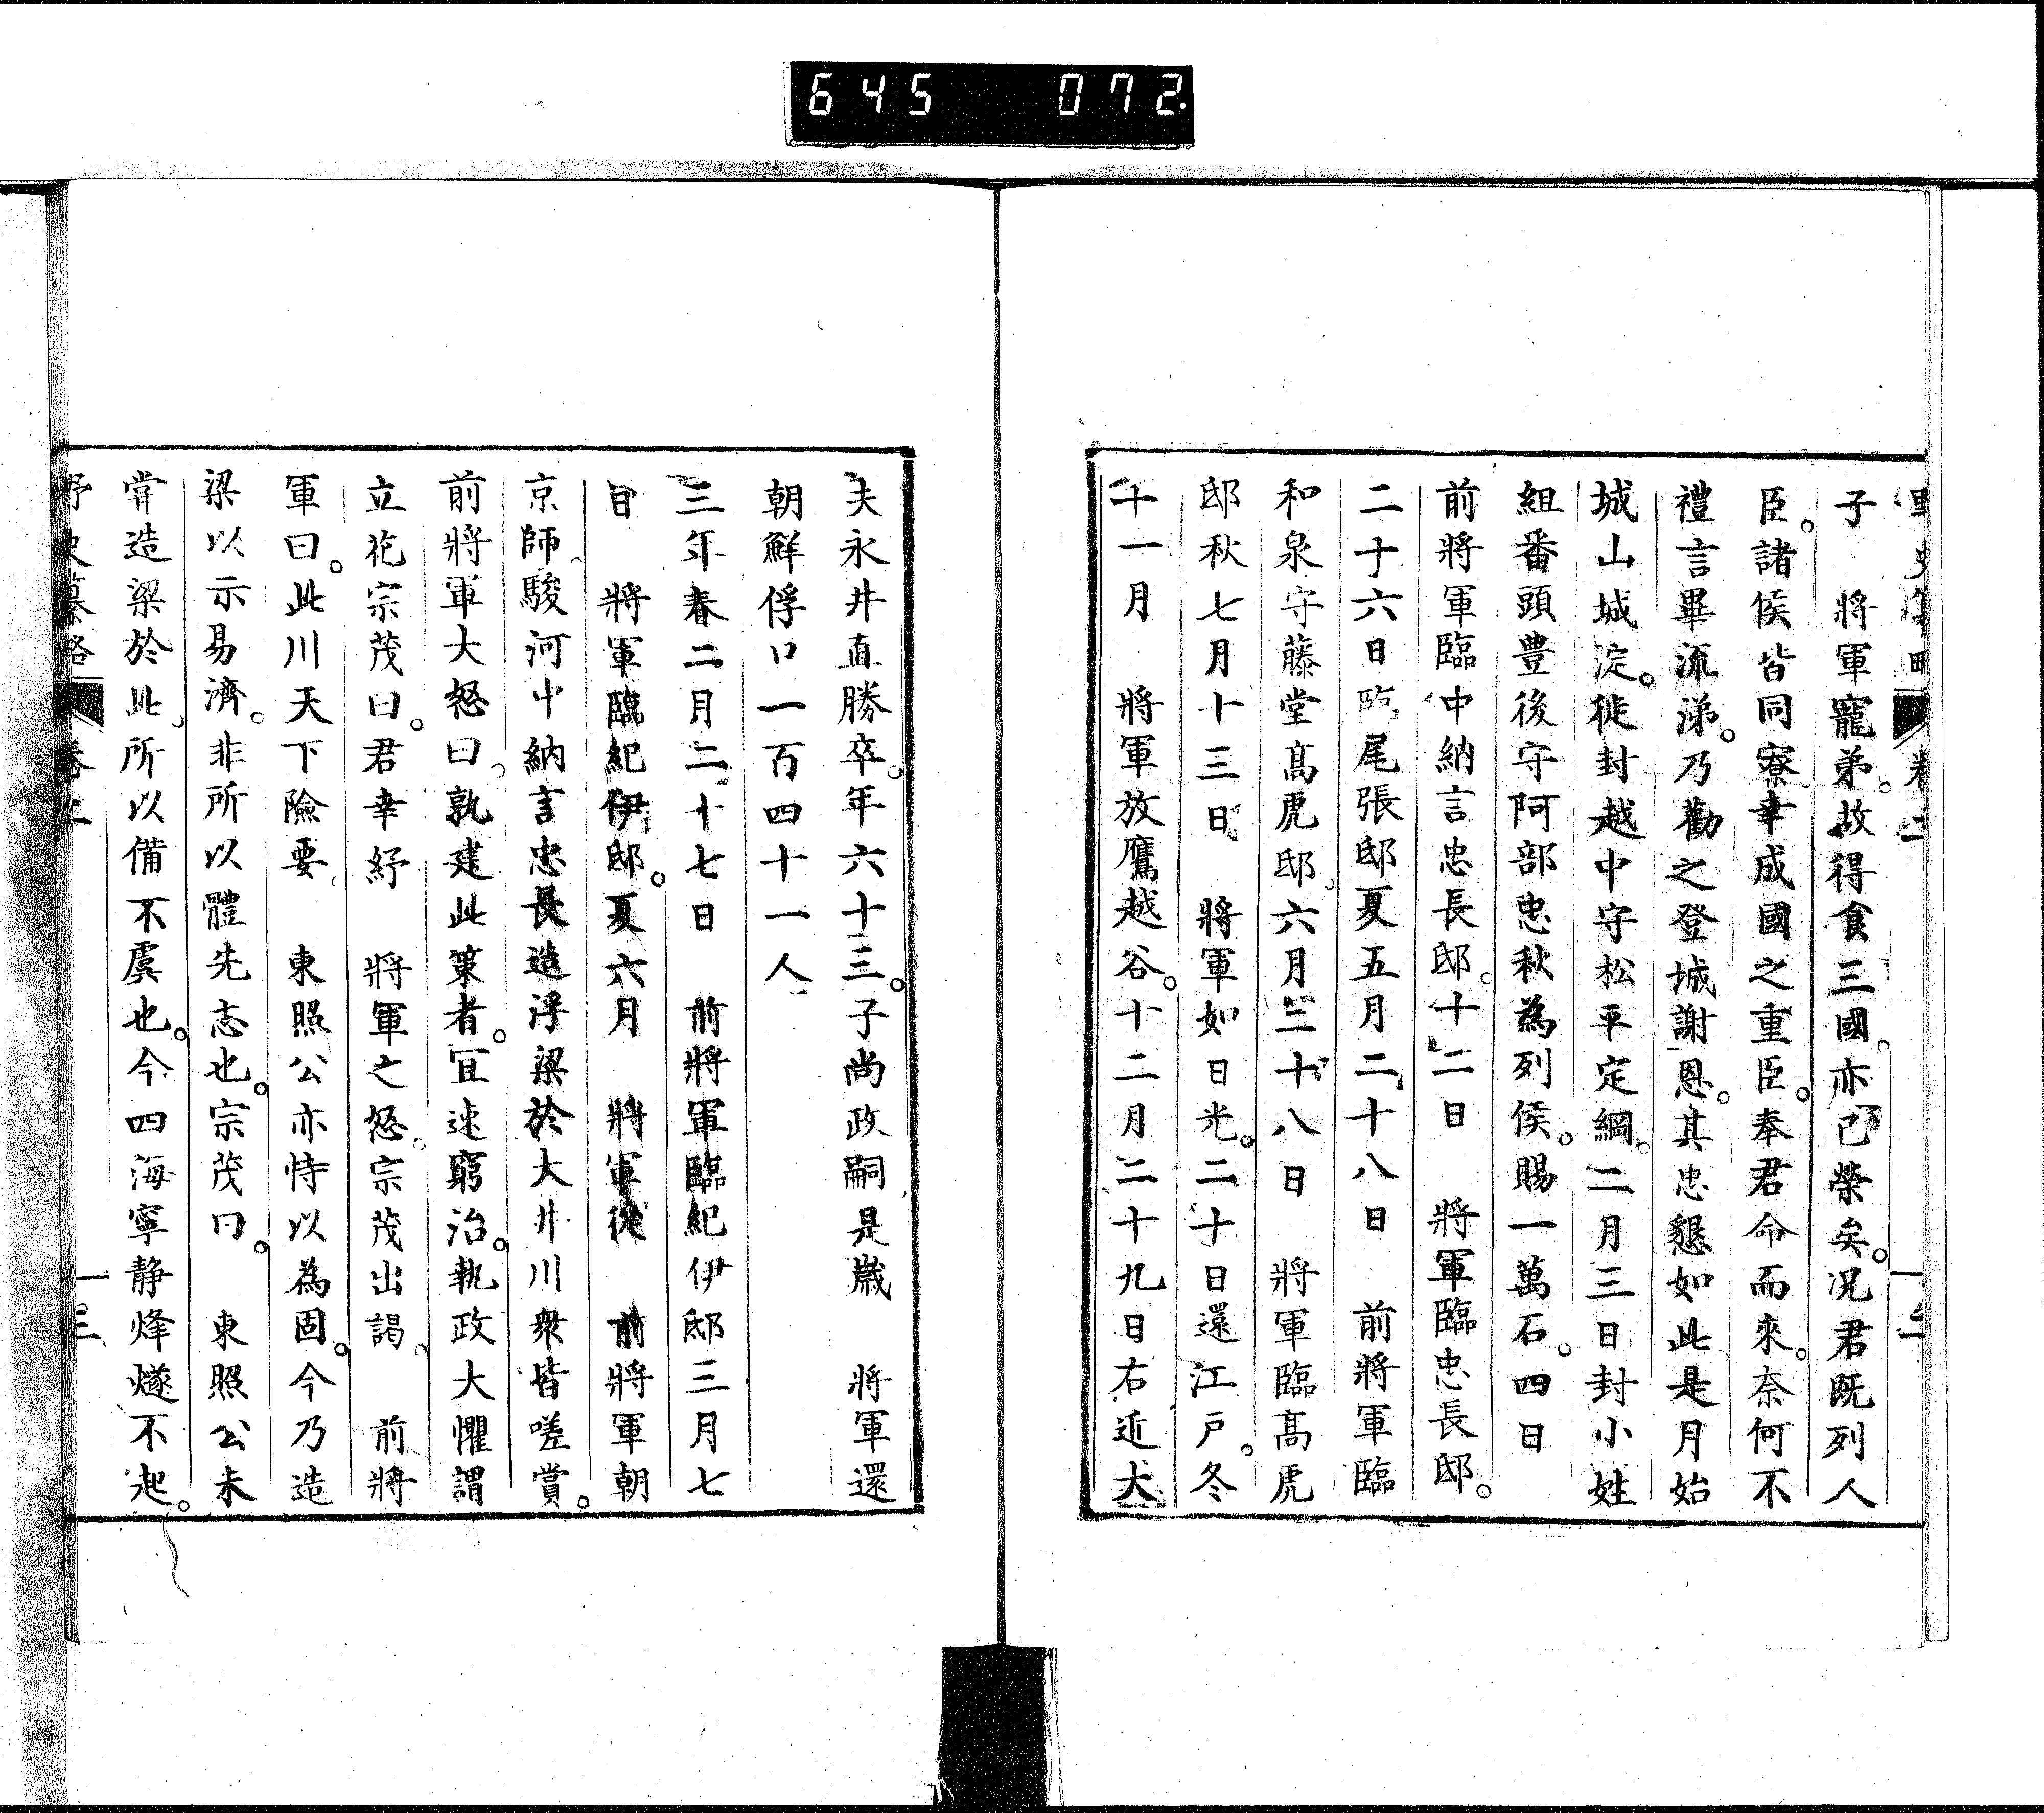 645 072.
野史纂略 卷二 十二
子 將軍寵弟。故得食三國。亦已榮矣。况君既列人
臣。諸侯皆同寮。幸成國之重臣。奉君命而來。奈何不
禮言畢流涕。乃勸之登城謝恩。其忠懇如此是月始
城山城淀。徙封越中守松平定綱。二月三日封小姓
組番頭豊後守阿部忠秋為列侯。賜一萬石。四日
前將軍臨中納言忠長邸。十二日 將軍臨忠長邸。
二十六日臨尾張邸夏五月二十八日 前將軍臨
和泉守藤堂高虎邸。六月二十八日 將軍臨高虎
邸秋七月十三日 將軍如日光。二十日還江戸。冬
十一月 將軍放鷹越谷。十二月二十九日右近大
夫永井直勝卒。年六十三。子尚政嗣是歲 將軍還
朝鮮俘口一百四十一人
三年春二月二十七日 前將軍臨紀伊邸三月七
日 將軍臨紀伊邸。夏六月 將軍從 前將軍朝
京師。駿河中納言忠長造浮梁於大井川衆皆嗟賞。
前將軍大怒曰。孰建此策者。宜速窮治。執政大懼謂
立花宗茂曰。君幸紓 將軍之怒。宗茂出謁。 前將
軍曰。此川天下險要。 東照公亦恃以為固。今乃造
梁以示易濟。非所以體先志也。宗茂曰。 東照公未
甞造梁於此。所以備不虞也。今四海寧静烽燧不起。
野史纂略 卷二 十三